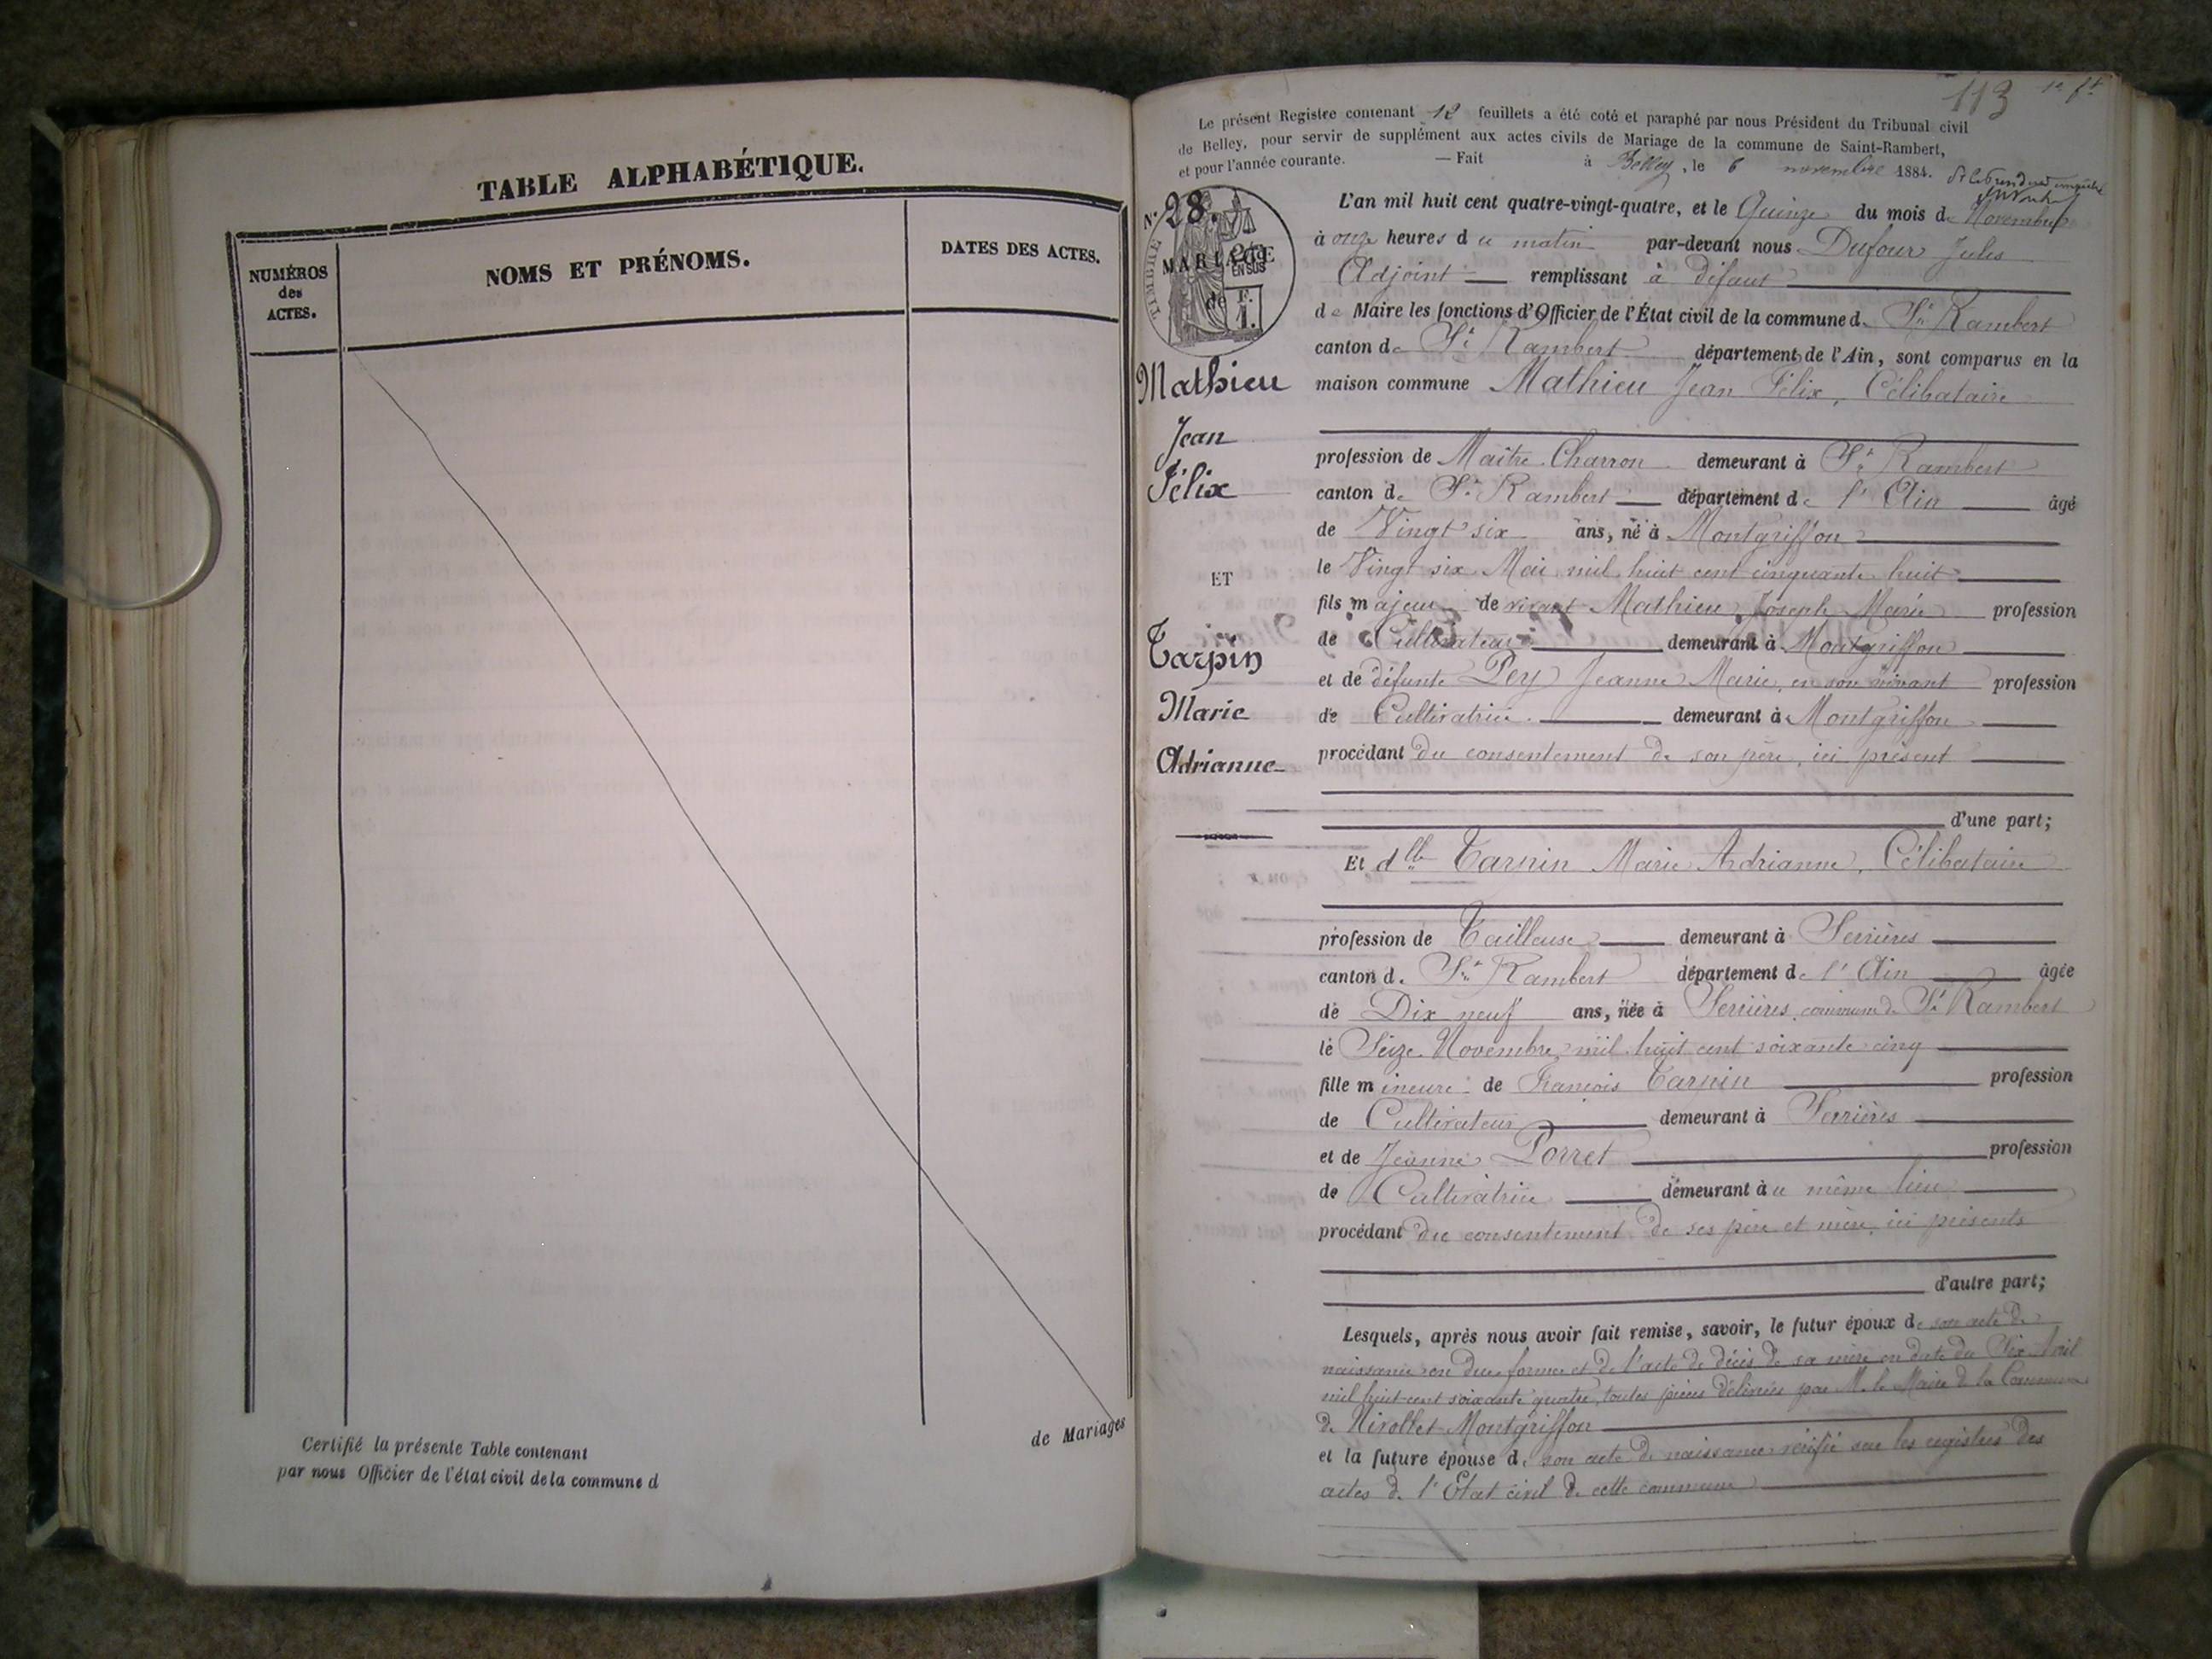 TABLE ALPHABÉTIQUE.
NUMÉROS
des
ACTES.
NOMS ET PRÉNOMS.
DATES DES ACTES.
Certifié la présente Table contenant
de Mariages
par nous Officier de l'état civil de la commune d
113 1er ft
Le présent Registre contenant 12 feuillets a été coté et paraphé par nous Président du Tribunal civil
de Belley, pour servir de supplément aux actes civils de Mariage de la commune de Saint-Rambert,
et pour l'année courante. — Fait à Belley, le 6 novembre 1884.
N° 28.
TIMBRE
MARIAGE
EN SUS
de F.
1.
Mathieu
Jean
Félix
ET
Tarpin
Marie
Adrianne
L'an mil huit cent quatre-vingt-quatre, et le Quinze du mois de Novembre
à onze heures du matin par-devant nous Dufour Jules
Adjoint remplissant à défaut
de Maire les fonctions d'Officier de l'État civil de la commune de St Rambert
canton de St Rambert département de l'Ain, sont comparus en la
maison commune Mathieu Jean Félix, Célibataire
profession de Maître Charron demeurant à St Rambert
canton de St Rambert département de l'Ain âgé
de Vingt six ans, né à Montgriffon
le Vingt six Mai mil huit cent cinquante huit
fils majeur de vivant Mathieu Joseph Marie profession
de Cultivateur demeurant à Montgriffon
et de défunte Pey Jeanne Marie, en son vivant profession
de Cultivatrice demeurant à Montgriffon
procédant du consentement de son père, ici présent
d'une part;
Et dlle Tarpin Marie Adrianne, Célibataire
profession de Tailleuse demeurant à Serrières
canton de St Rambert département de l'Ain âgée
de Dix neuf ans, née à Serrières, commune de St Rambert
le Seize Novembre mil huit cent soixante cinq
fille mineure de François Tarpin profession
de Cultivateur demeurant à Serrières
et de Jeanne Porret profession
de Cultivatrice demeurant au même lieu
procédant du consentement de ses père et mère, ici présents
d'autre part;
Lesquels, après nous avoir fait remise, savoir, le futur époux de son acte de
naissance en due forme et de l'acte de décès de sa mère en date du Six Avril
mil huit cent soixante quatre, toutes pièces délivrées par M. le Maire de la Commune
de Nivollet-Montgriffon
et la future épouse de son acte de naissance vérifié sur les registres des
actes de l'État civil de cette commune